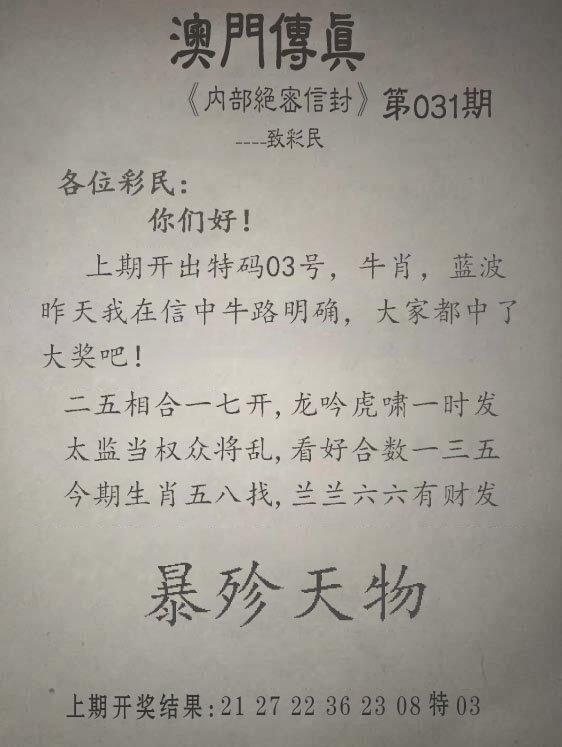 澳門傳真
《内部絕密信封》第031期
----致彩民
各位彩民：
你们好！
上期开出特码03号，牛肖，蓝波
昨天我在信中牛路明确，大家都中了
大奖吧！
二五相合一七开,龙吟虎啸一时发
太监当权众将乱,看好合数一三五
今期生肖五八找,兰兰六六有财发
暴殄天物
上期开奖结果:21 27 22 36 23 08 特 03